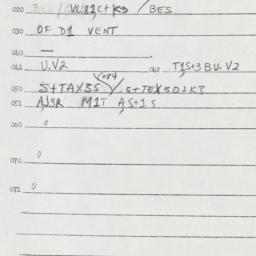 020 /VU81,C+K3 / BES
030 OF D1 VENT
040 —
041 U.V2 042 T1S+3 BU. V2
050 S+TAX3S /084 S+TEX3D2K3
051 A,J3R M1T A,S+1S
060 0
070 0
071 0